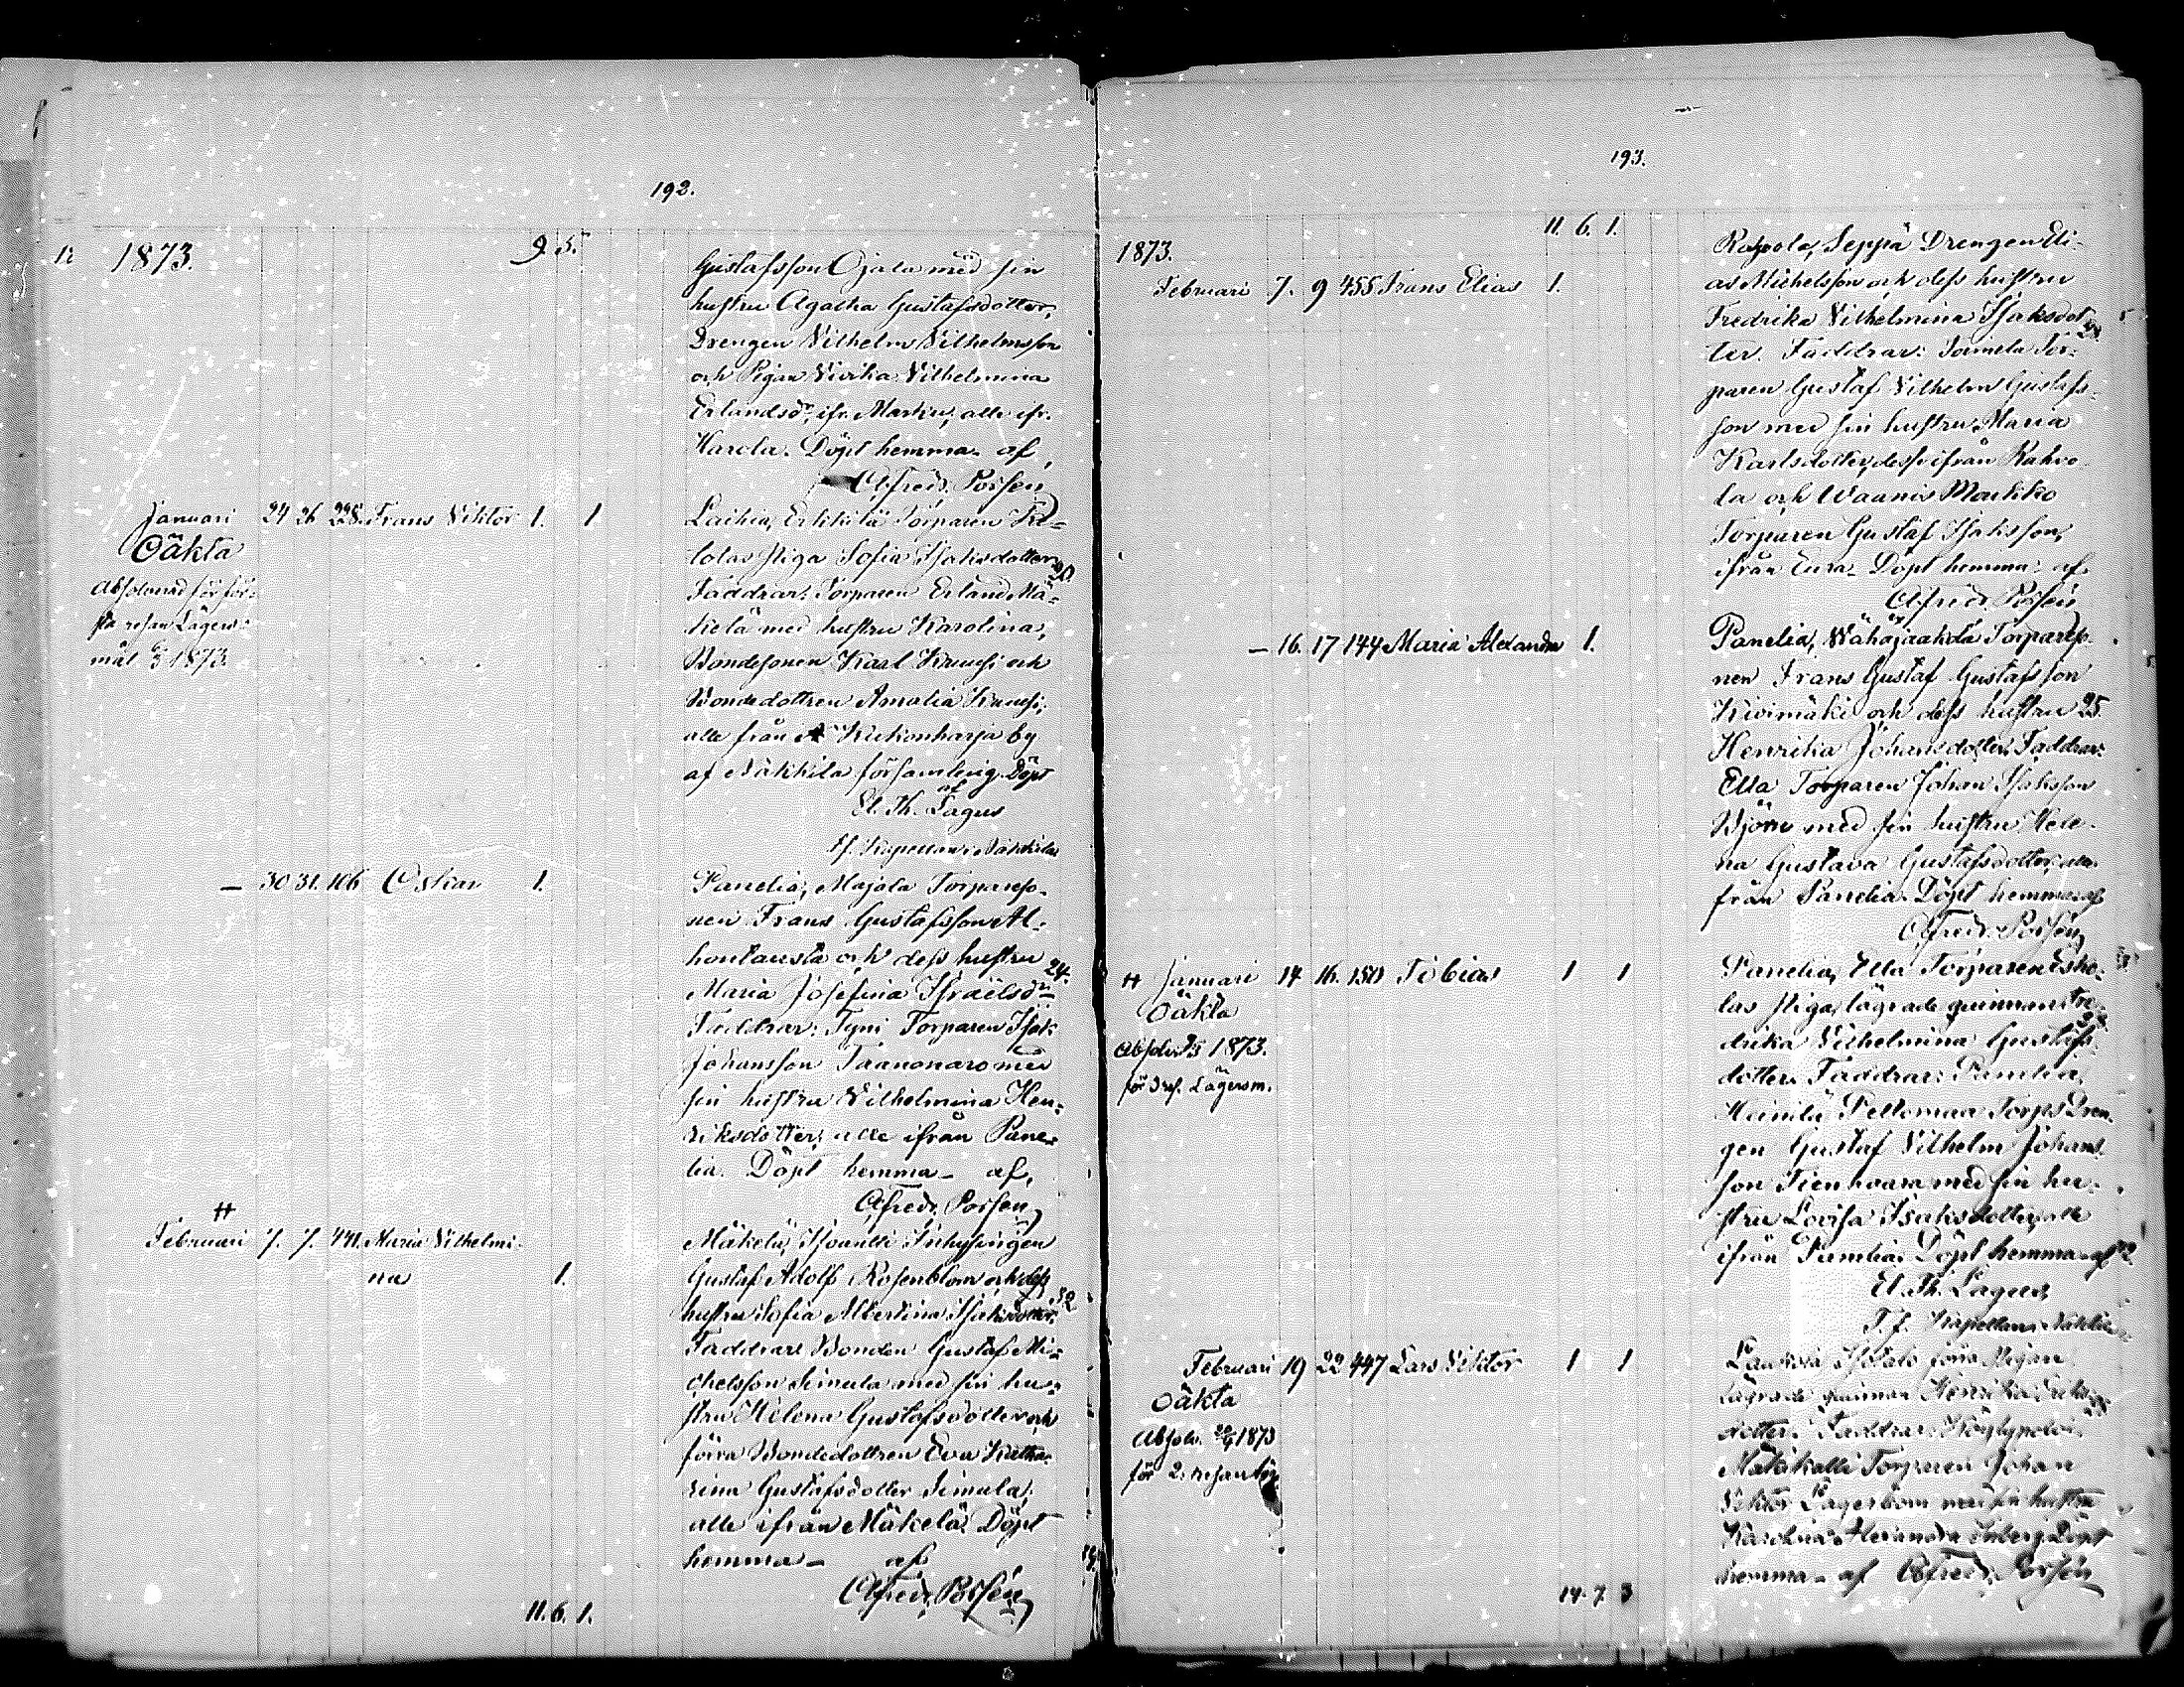 192.
1873.
9. 5.
Gustafsson Ojala med sin
hustru Agatha Gustafsdotter,
Drengen Vilhelm Vilhelmsson
och Pigan Vivika Vilhelmina
Erlandsdr. ifr. Marku, alle ifr.
Harola. Döpt hemma af
Alfred. Porsén
Januari 24 26 228. Frans Viktor 1. 1
Oäkta
Absolverad för för-
sta resan Lägers-
mål 1873.
Laihia, Erkkilä Torparen
Piga Sofia Isaksdotter
Faddrar: Torparen Erland Mä-
kelä med hustru Karolina,
Bondesonen Karl Krusi och
Bondedottren Amalia Krusi,
alle från Kukonharja by
af Nakkila församling. Döpt
af
El. Th. Lagus
tf. Kapellan i Nakkila
— 30 31. 106 Oskar 1.
Panelia, Majala Torpareso-
nen Frans Gustafsson Al-
hontausta och dess hustru
24.
Maria Josefina Israelsdr
Faddrar: Tyni Torparen Isak
Johansson Taanonaro med
sin hustru Vilhelmina Hen-
riksdotter, alle ifrån Pane-
lia. Döpt hemma af,
Alfred. Porsén
Februari 7. 7. 441. Maria Vilhelmi-
na 1.
Mäkelä, Inhysingen
Gustaf Adolf Rosenblom och dess
hustru Sofia Albertina Isaksdotter. 32
Faddrar: Bonden Gustaf Mi-
chelsson Simula med sin hu-
stru Helena Gustafsdotter och
förra Bondedottren Eva Katha-
rina Gustafsdotter Simula,
alle ifrån Mäkelä. Döpt
hemma af
Alfred. Porsén
11. 6. 1.
193.
11. 6. 1.
1873.
Februari 7. 9 455 Frans Elias 1.
Rahvola, Seppä Drengen Eli-
as Michelsson och dess hustru
Fredrika Vilhelmina Isaksdot-
ter. Faddrar: Tor-
paren Gustaf Vilhelm Gustafs-
son med sin hustru Maria
Karlsdotter, desse ifrån Rahvo-
la och Waanis Markko
Torparen Gustaf Isaksson,
ifrån Eura. Döpt hemma af
Alfred. Porsén
— 16. 17 144 Maria Alexandra 1.
Panelia, Wähäjaakola Torpareso-
nen Frans Gustaf Gustafsson
Kivimäki och dess hustru 25.
Henrika Johansdotter. Faddrar:
Ella Torparen Johan Isaksson
Björn med sin hustru Hele-
na Gustava Gustafsdotter, alla
från Panelia. Döpt hemma af
Alfred. Porsén
Januari 14 16. 150 Tobias 1 1
Oäkta
Absolv. 1873.
för 3 res. Lägersm.
Panelia, Ella Torparen Esko-
las Piga, lägrade quinnan Fre-
drika Vilhelmina Gustafs-
dotter. Faddrar: Panelia,
Heinilä Peltomaa Torps Dren-
gen Gustaf Vilhelm Johans-
son Tienhaara med sin hu-
stru Lovisa Isaksdotter, alle
ifrån Panelia. Döpt hemma af
El. Th. Lagus
T.f. Kapellan i Nakkila
Februari 19 22 447 Lars Viktor 1 1
Oäkta
Absolv. 1873
för 2. resan
förra Pigan
Lägrade quinnan Henrika
dotter. Faddrar:
Torparen Johan
Viktor Lagerbom med sin hustru
Karolina Alexandra Döpt
hemma af Alfred. Porsén
14. 7. 3